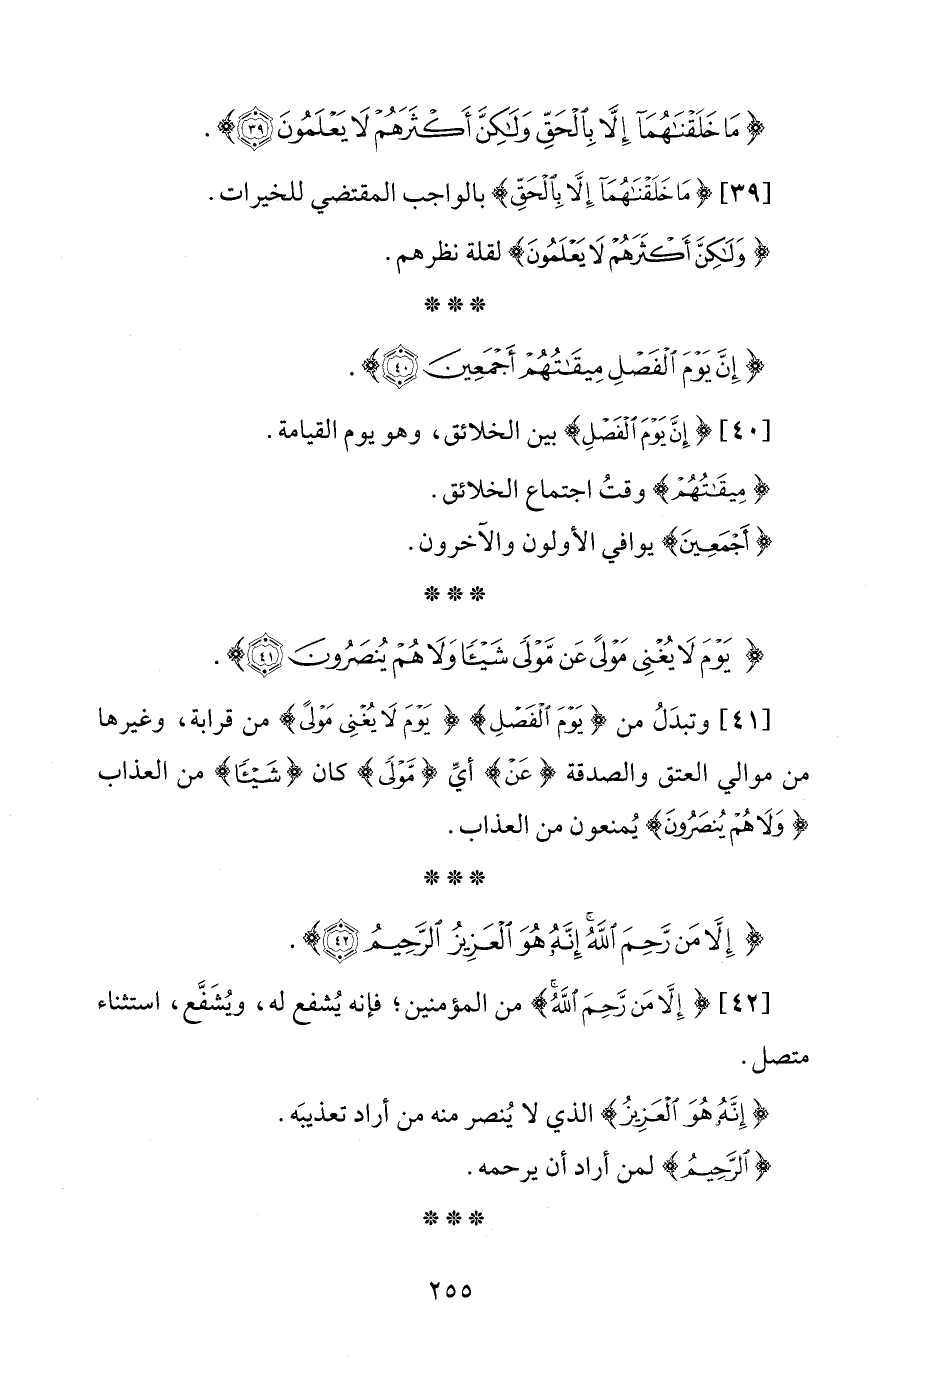 ﴿ مَا خَلَقْنَٰهُمَآ إِلَّا بِٱلْحَقِّ وَلَٰكِنَّ أَكْثَرَهُمْ لَا يَعْلَمُونَ ٣٩ ﴾ .
[٣٩] ﴿ مَا خَلَقْنَٰهُمَآ إِلَّا بِٱلْحَقِّ ﴾ بالواجب المقتضي للخيرات .
﴿ وَلَٰكِنَّ أَكْثَرَهُمْ لَا يَعْلَمُونَ ﴾ لقلة نظرهم .
* * *
﴿ إِنَّ يَوْمَ ٱلْفَصْلِ مِيقَٰتُهُمْ أَجْمَعِينَ ٤٠ ﴾ .
[٤٠] ﴿ إِنَّ يَوْمَ ٱلْفَصْلِ ﴾ بين الخلائق، وهو يوم القيامة .
﴿ مِيقَٰتُهُمْ ﴾ وقتُ اجتماع الخلائق .
﴿ أَجْمَعِينَ ﴾ يوافي الأولون والآخرون .
* * *
﴿ يَوْمَ لَا يُغْنِى مَوْلًى عَن مَّوْلًى شَيْـًٔا وَلَا هُمْ يُنصَرُونَ ٤١ ﴾ .
[٤١] وتبدَلُ من ﴿ يَوْمَ ٱلْفَصْلِ ﴾ ﴿ يَوْمَ لَا يُغْنِى مَوْلًى ﴾ من قرابة، وغيرها
من موالي العتق والصدقة ﴿ عَنْ ﴾ أيِّ ﴿ مَّوْلًى ﴾ كان ﴿ شَيْـًٔا ﴾ من العذاب
﴿ وَلَا هُمْ يُنصَرُونَ ﴾ يُمنعون من العذاب .
* * *
﴿ إِلَّا مَن رَّحِمَ ٱللَّهُ ۚ إِنَّهُۥ هُوَ ٱلْعَزِيزُ ٱلرَّحِيمُ ٤٢ ﴾ .
[٤٢] ﴿ إِلَّا مَن رَّحِمَ ٱللَّهُ ۚ ﴾ من المؤمنين؛ فإنه يُشفع له، ويُشَفَّع، استثناء
متصل .
﴿ إِنَّهُۥ هُوَ ٱلْعَزِيزُ ﴾ الذي لا يُنصر منه من أراد تعذيبَه .
﴿ ٱلرَّحِيمُ ﴾ لمن أراد أن يرحمه .
* * *
٢٥٥